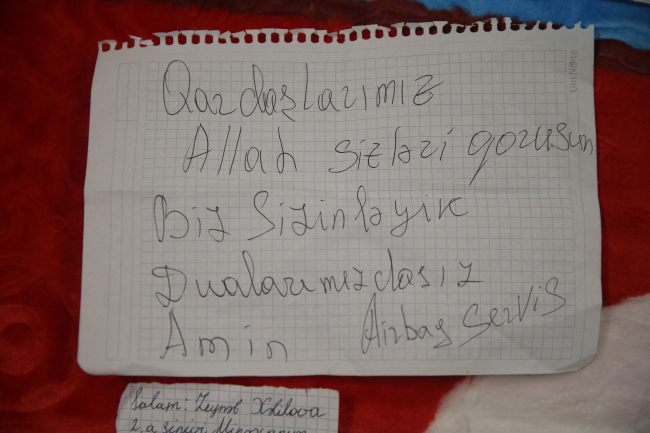 Qardaşlarımız
Allah sizləri qorusun
Biz Sizinləyik
Dualarımızdasız
Amin Airbag servis
UniNote
Salam: Zeynəb Xəlilova
2 a sinifi